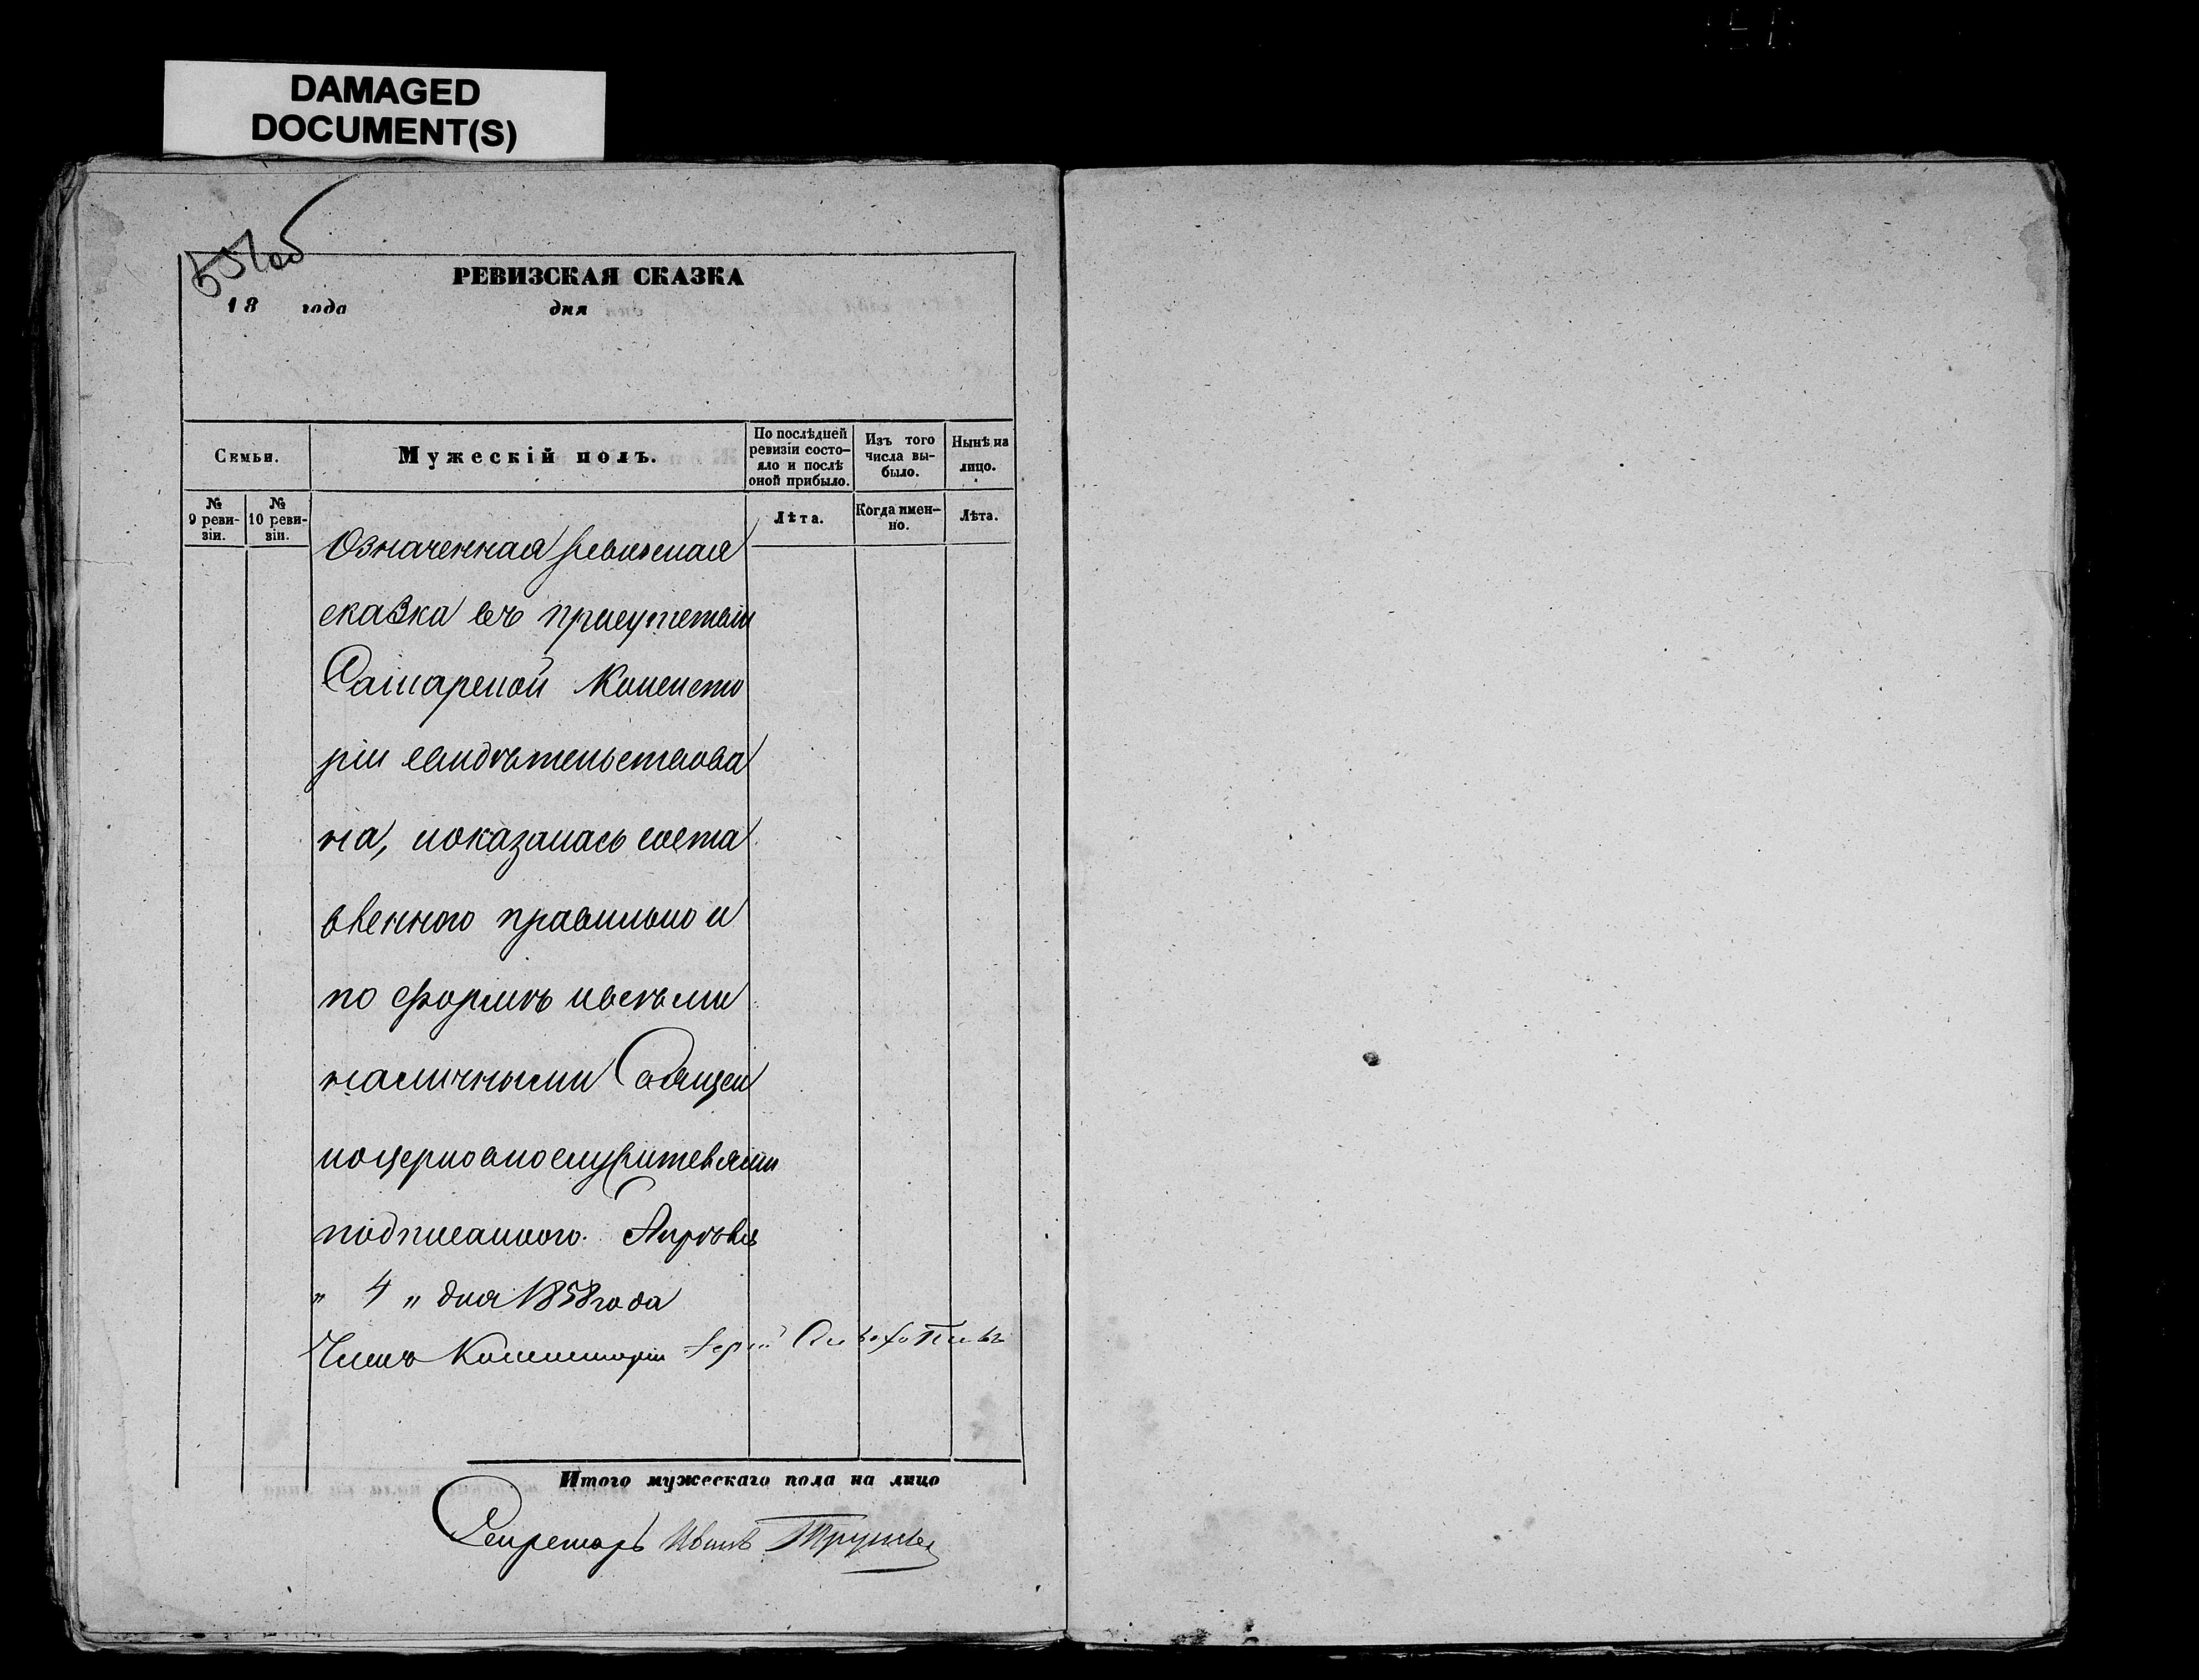 DAMAGED
DOCUMENT(S)
РЕВИЗСКАЯ СКАЗКА
18 года дня
Семьи.
Мужескій полъ.
По послѣдней ревизіи состо-
яло и послѣ
оной прибыло.
Изъ того
числа вы-
было.
Нынѣ на
лицо.
№
9 реви-
зіи.
№
10 реви-
зіи.
Лѣта.
Когда имен-
но.
Лѣта.
Означенная ревизская
сказка въ присутствіи
Самарской Консисто
ріи свидѣтельствова
на, показалась соста
вленною правильно и
по формѣ и всѣми
наличными Священ
ноцерковнослужителями
подписанною. Апрѣля
„ 4 „ дня 1858 года
Членъ Консисторіи Іерей
Итого мужескаго пола на лицо
Секретарь Иванъ